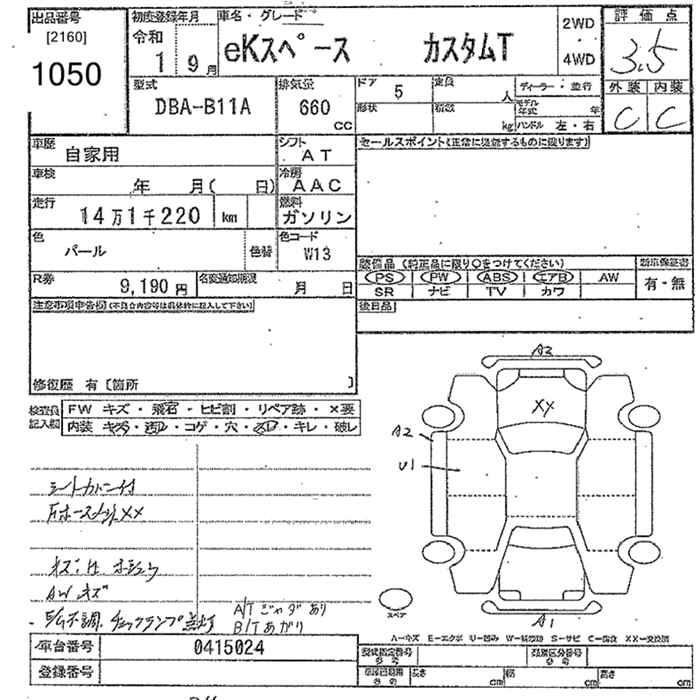 出品番号
[2160]
1050
初度登録年月
令和
1 9月
車名・グレード
eKスペース カスタムT
2WD
・
4WD
評価点
3.5
外装 内装
C C
型式
DBA-B11A
排気量
660
cc
ドア 5
定員
人
形状
積数
kg
ディーラー・並行
モデル年式 年
ハンドル 左・右
車歴
自家用
シフト
AT
セールスポイント(正常に機能するものに限ります)
車検
年 月( 日)
冷房
AAC
走行
14万1千220 km
燃料
ガソリン
色
パール
色替
色コード
W13
装備品 (純正品に限り○をつけてください)
PS PW ABS エアB AW
SR ナビ TV カワ
新車保証書
有・無
R券
9,190円
名変通知期限
月 日
後日品
注意事項申告欄(不具合内容等は具体的に記入して下さい)
修復歴 有〔箇所 〕
検査員記入欄
FW キズ・飛石・ヒビ割・リペア跡・×要
内装 キズ・汚れ・コゲ・穴・スレ・キレ・破レ
A2
XX
A2
U1
A1
スペア
シートカバー付
キズ・凹
AWキズ
チェックランプ点灯
A/Tジャダあり
B/Tあがり
A-キズ E-エクボ U-凹み W-補修跡 S-サビ C-腐食 XX-交換済
車台番号
0415024
登録番号
型式指定番号
参考
類別区分番号
参考
長さ cm
幅 cm
高さ cm